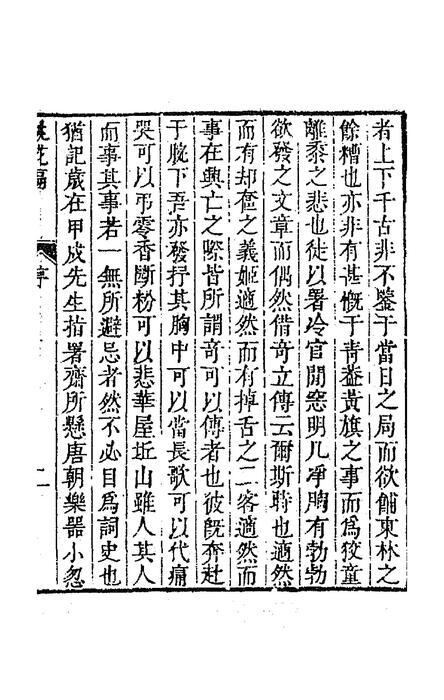 者上下千古非不鑒于當日之局而欲餔東林之
餘糟也亦非有甚慨于青蓋黃旗之事而爲狡童
離黍之悲也徒以署冷官閒窓明几淨胸有勃勃
欲發之文章而偶然借奇立傳云爾斯時也適然
而有却奩之義姬適然而有掉舌之二客適然而
事在興亡之際皆所謂奇可以傳者也彼旣奔赴
于腕下吾亦發抒其胸中可以當長歌可以代痛
哭可以弔零香斷粉可以悲華屋坵山雖人其人
而事其事若一無所避忌者然不必目爲詞史也
猶記歲在甲戌先生指署齋所懸唐朝樂器小忽
序
二